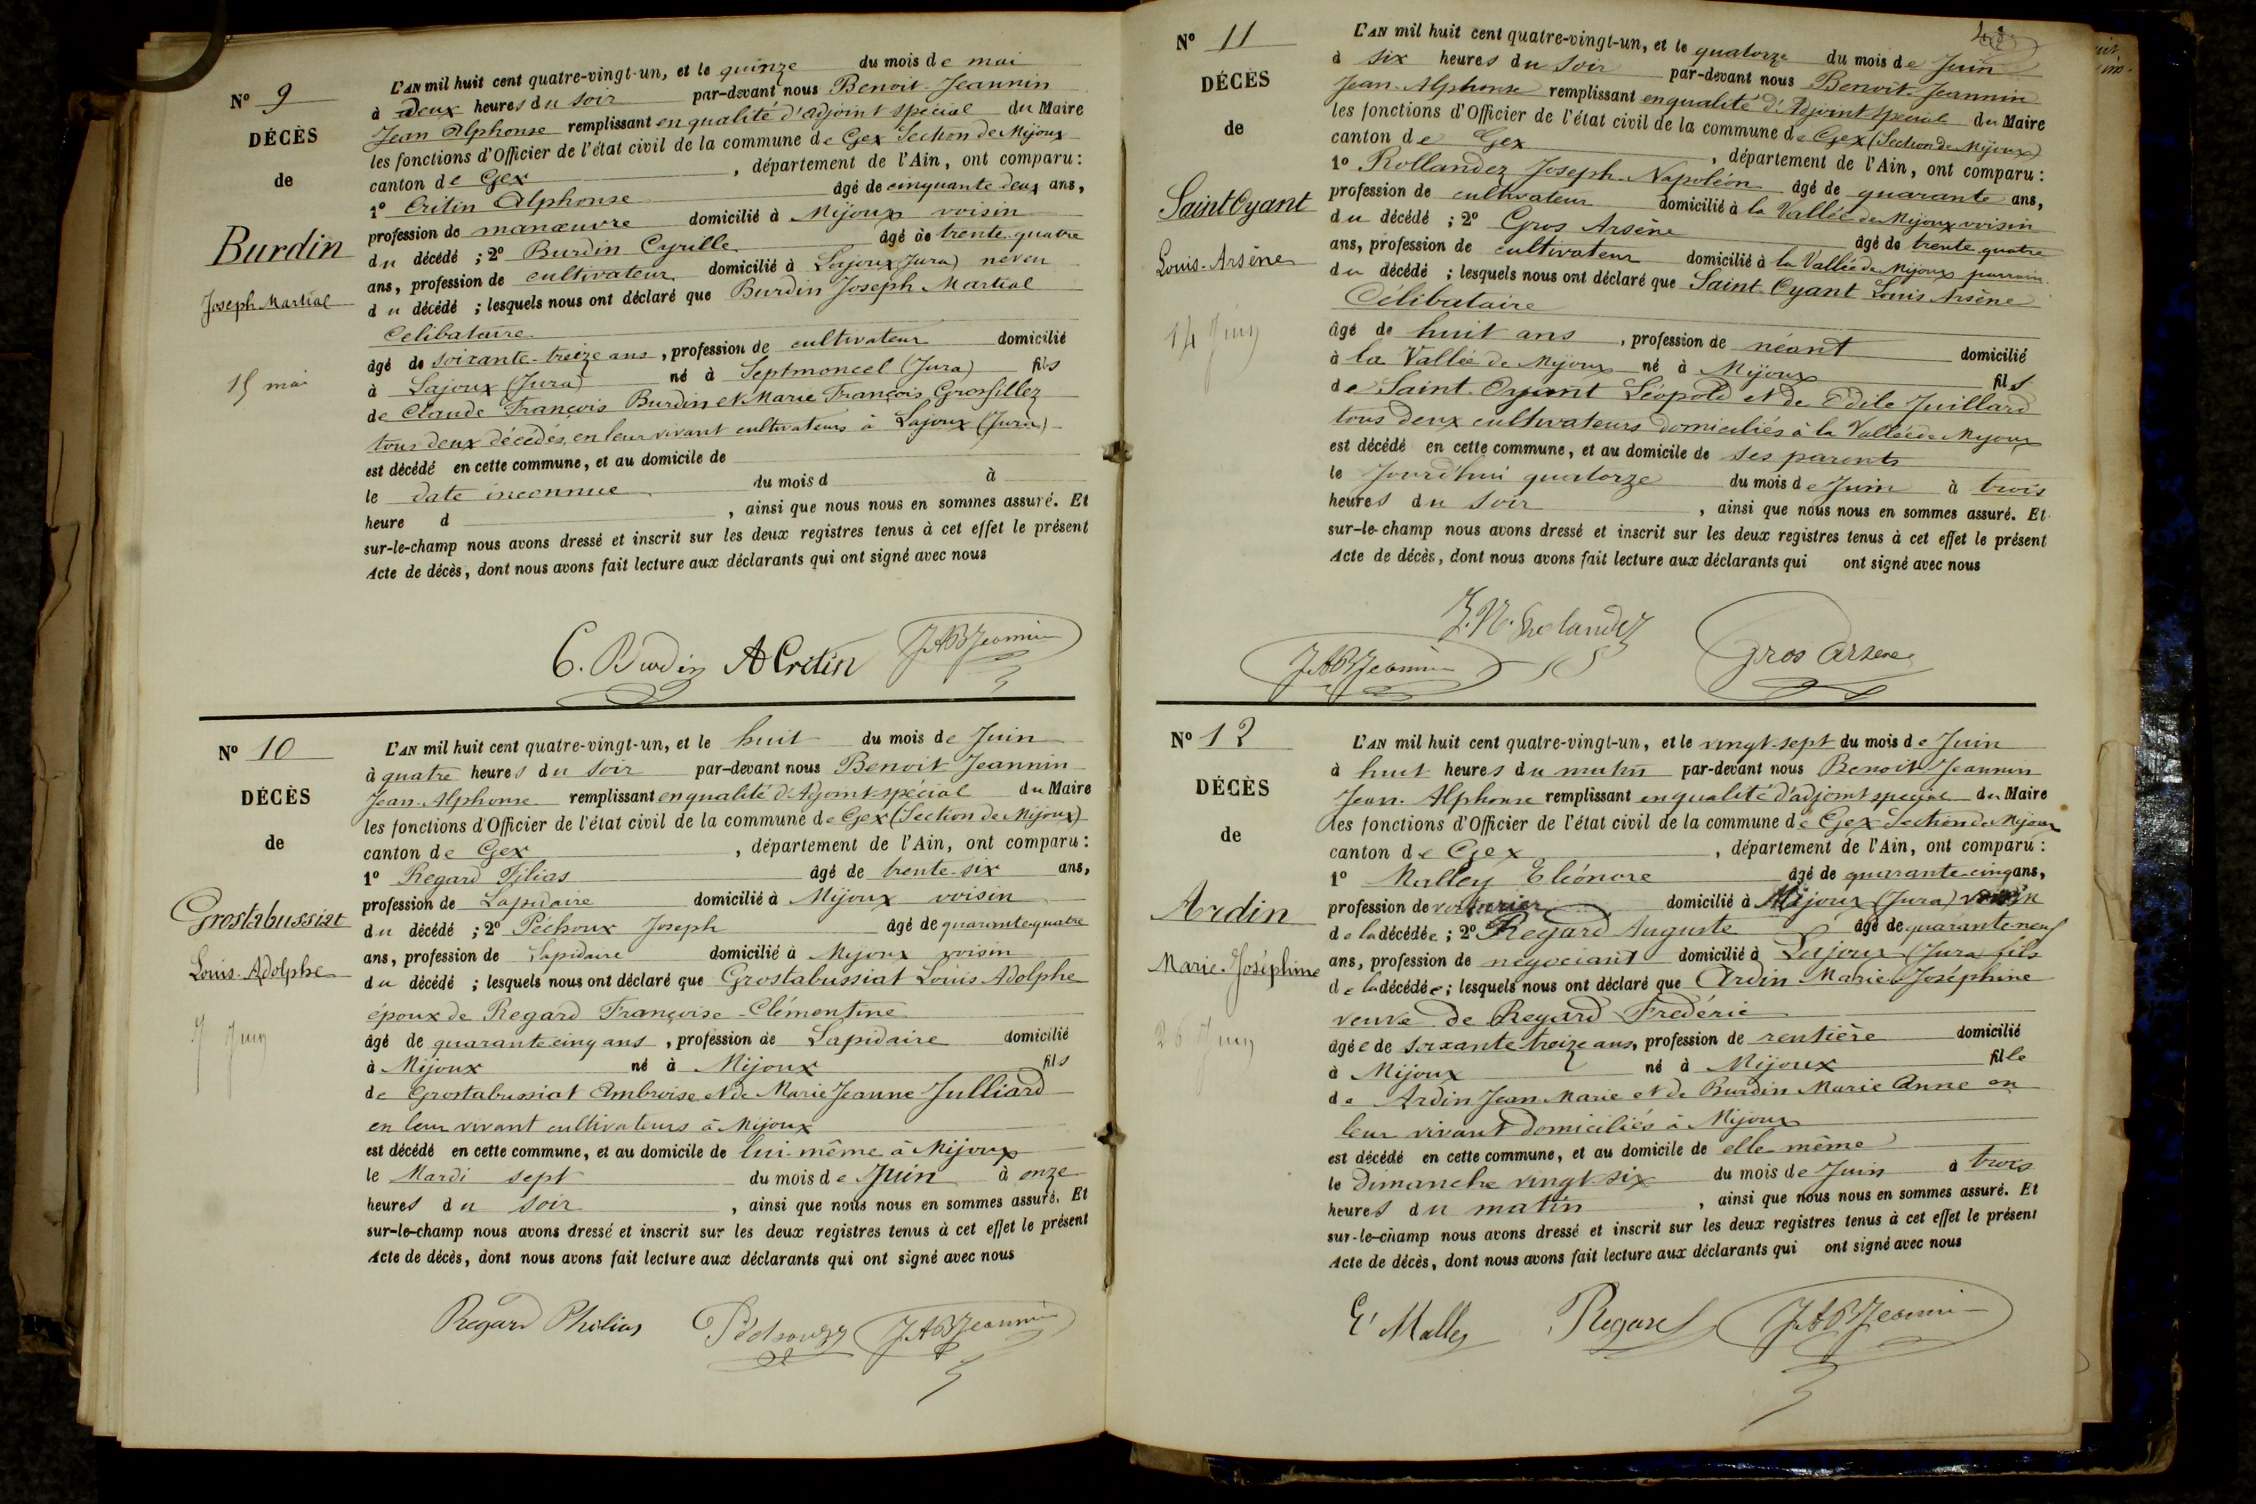 Nº 9
DÉCÈS
de
Burdin
Joseph Martial
15 mai
L'AN mil huit cent quatre-vingt-un, et le quinze du mois de mai
à Deux heures du soir par-devant nous Benoit-Jeannin
Jean Alphonse remplissant en qualité d'adjoint spécial du Maire
les fonctions d'Officier de l'état civil de la commune de Gex Section de Mijoux
canton de Gex, département de l'Ain, ont comparu :
1º Critin Alphonse âgé de cinquante deux ans,
profession de manœuvre domicilié à Mijoux voisin
du décédé ; 2º Burdin Cyrille âgé de trente quatre
ans, profession de cultivateur domicilié à Lajoux (Jura) neveu
du décédé ; lesquels nous ont déclaré que Burdin Joseph Martial
Celibataire
âgé de soixante-treize ans, profession de cultivateur domicilié
à Lajoux (Jura) né à Septmoncel (Jura) fils
de Claude François Burdin et Marie François Grosfillez
tous deux décédés, en leur vivant cultivateurs à Lajoux (Jura)
est décédé en cette commune, et au domicile de
le date inconnue du mois d à
heure d , ainsi que nous nous en sommes assuré. Et
sur-le-champ nous avons dressé et inscrit sur les deux registres tenus à cet effet le présent
Acte de décès, dont nous avons fait lecture aux déclarants qui ont signé avec nous
C. Burdin A Critin JABJeannin
Nº 10
DÉCÈS
de
Grostabussiat
Louis-Adolphe
7 Juin
L'AN mil huit cent quatre-vingt-un, et le huit du mois de Juin
à quatre heures du soir par-devant nous Benoit-Jeannin
Jean-Alphonse remplissant en qualité d'Adjoint-spécial du Maire
les fonctions d'Officier de l'état civil de la commune de Gex (Section de Mijoux)
canton de Gex, département de l'Ain, ont comparu :
1º Regard Filias âgé de trente-six ans,
profession de Lapidaire domicilié à Mijoux voisin
du décédé ; 2º Péchoux Joseph âgé de quarante-quatre
ans, profession de Lapidaire domicilié à Mijoux voisin
du décédé ; lesquels nous ont déclaré que Grostabussiat Louis Adolphe
époux de Regard Françoise-Clémentine
âgé de quarante cinq ans, profession de Lapidaire domicilié
à Mijoux né à Mijoux fils
de Grostabussiat Ambroise et de Marie Jeanne Julliard
en leur vivant cultivateurs à Mijoux
est décédé en cette commune, et au domicile de lui-même à Mijoux
le Mardi sept du mois de Juin à onze
heures du soir, ainsi que nous nous en sommes assuré. Et
sur-le-champ nous avons dressé et inscrit sur les deux registres tenus à cet effet le présent
Acte de décès, dont nous avons fait lecture aux déclarants qui ont signé avec nous
Regard Philias JABJeannin
Nº 11
DÉCÈS
de
Saint Oyant
Louis-Arsène
14 Juin
L'AN mil huit cent quatre-vingt-un, et le quatorze du mois de Juin
à six heures du soir par-devant nous Benoit-Jeannin
Jean-Alphonse remplissant en qualité d'Adjoint-spécial du Maire
les fonctions d'Officier de l'état civil de la commune de Gex (Section de Mijoux)
canton de Gex, département de l'Ain, ont comparu :
1º Rollandez Joseph-Napoléon âgé de quarante ans,
profession de cultivateur domicilié à la Vallée de Mijoux voisin
du décédé ; 2º Gros Arsène âgé de trente-quatre
ans, profession de cultivateur domicilié à la Vallée de Mijoux parrain
du décédé ; lesquels nous ont déclaré que Saint-Oyant Louis Arsène
Célibataire
âgé de huit ans, profession de néant domicilié
à la Vallée de Mijoux né à Mijoux fils
de Saint-Oyant Léopold et de Odile Juillard
tous deux cultivateurs domiciliés à la Vallée de Mijoux
est décédé en cette commune, et au domicile de ses parents
le Jourd'hui quatorze du mois de Juin à trois
heures du soir, ainsi que nous nous en sommes assuré. Et
sur-le-champ nous avons dressé et inscrit sur les deux registres tenus à cet effet le présent
Acte de décès, dont nous avons fait lecture aux déclarants qui ont signé avec nous
JABJeannin Gros Arsene
Nº 12
DÉCÈS
de
Ardin
Marie-Joséphine
26 Juin
L'AN mil huit cent quatre-vingt-un, et le vingt-sept du mois de Juin
à huit heures du matin par-devant nous Benoit-Jeannin
Jean-Alphonse remplissant en qualité d'adjoint spécial du Maire
les fonctions d'Officier de l'état civil de la commune de Gex Section de Mijoux
canton de Gex, département de l'Ain, ont comparu :
1º Malley Eléonore âgé de quarante-cinq ans,
profession de domicilié à Mijoux (Jura) voisin
de la décédée ; 2º Regard Auguste âgé de quarante-neuf
ans, profession de négociant domicilié à Lajoux (Jura fils
de la décédée ; lesquels nous ont déclaré que Ardin Marie-Joséphine
veuve de Regard Frédéric
âgée de soixante treize ans, profession de rentière domicilié
à Mijoux né à Mijoux fille
de Ardin Jean Marie et de Burdin Marie Anne en
leur vivant domiciliés à Mijoux
est décédé en cette commune, et au domicile de elle même
le Dimanche vingt-six du mois de Juin à trois
heures du matin, ainsi que nous nous en sommes assuré. Et
sur-le-champ nous avons dressé et inscrit sur les deux registres tenus à cet effet le présent
Acte de décès, dont nous avons fait lecture aux déclarants qui ont signé avec nous
E Malley Regard JABJeannin